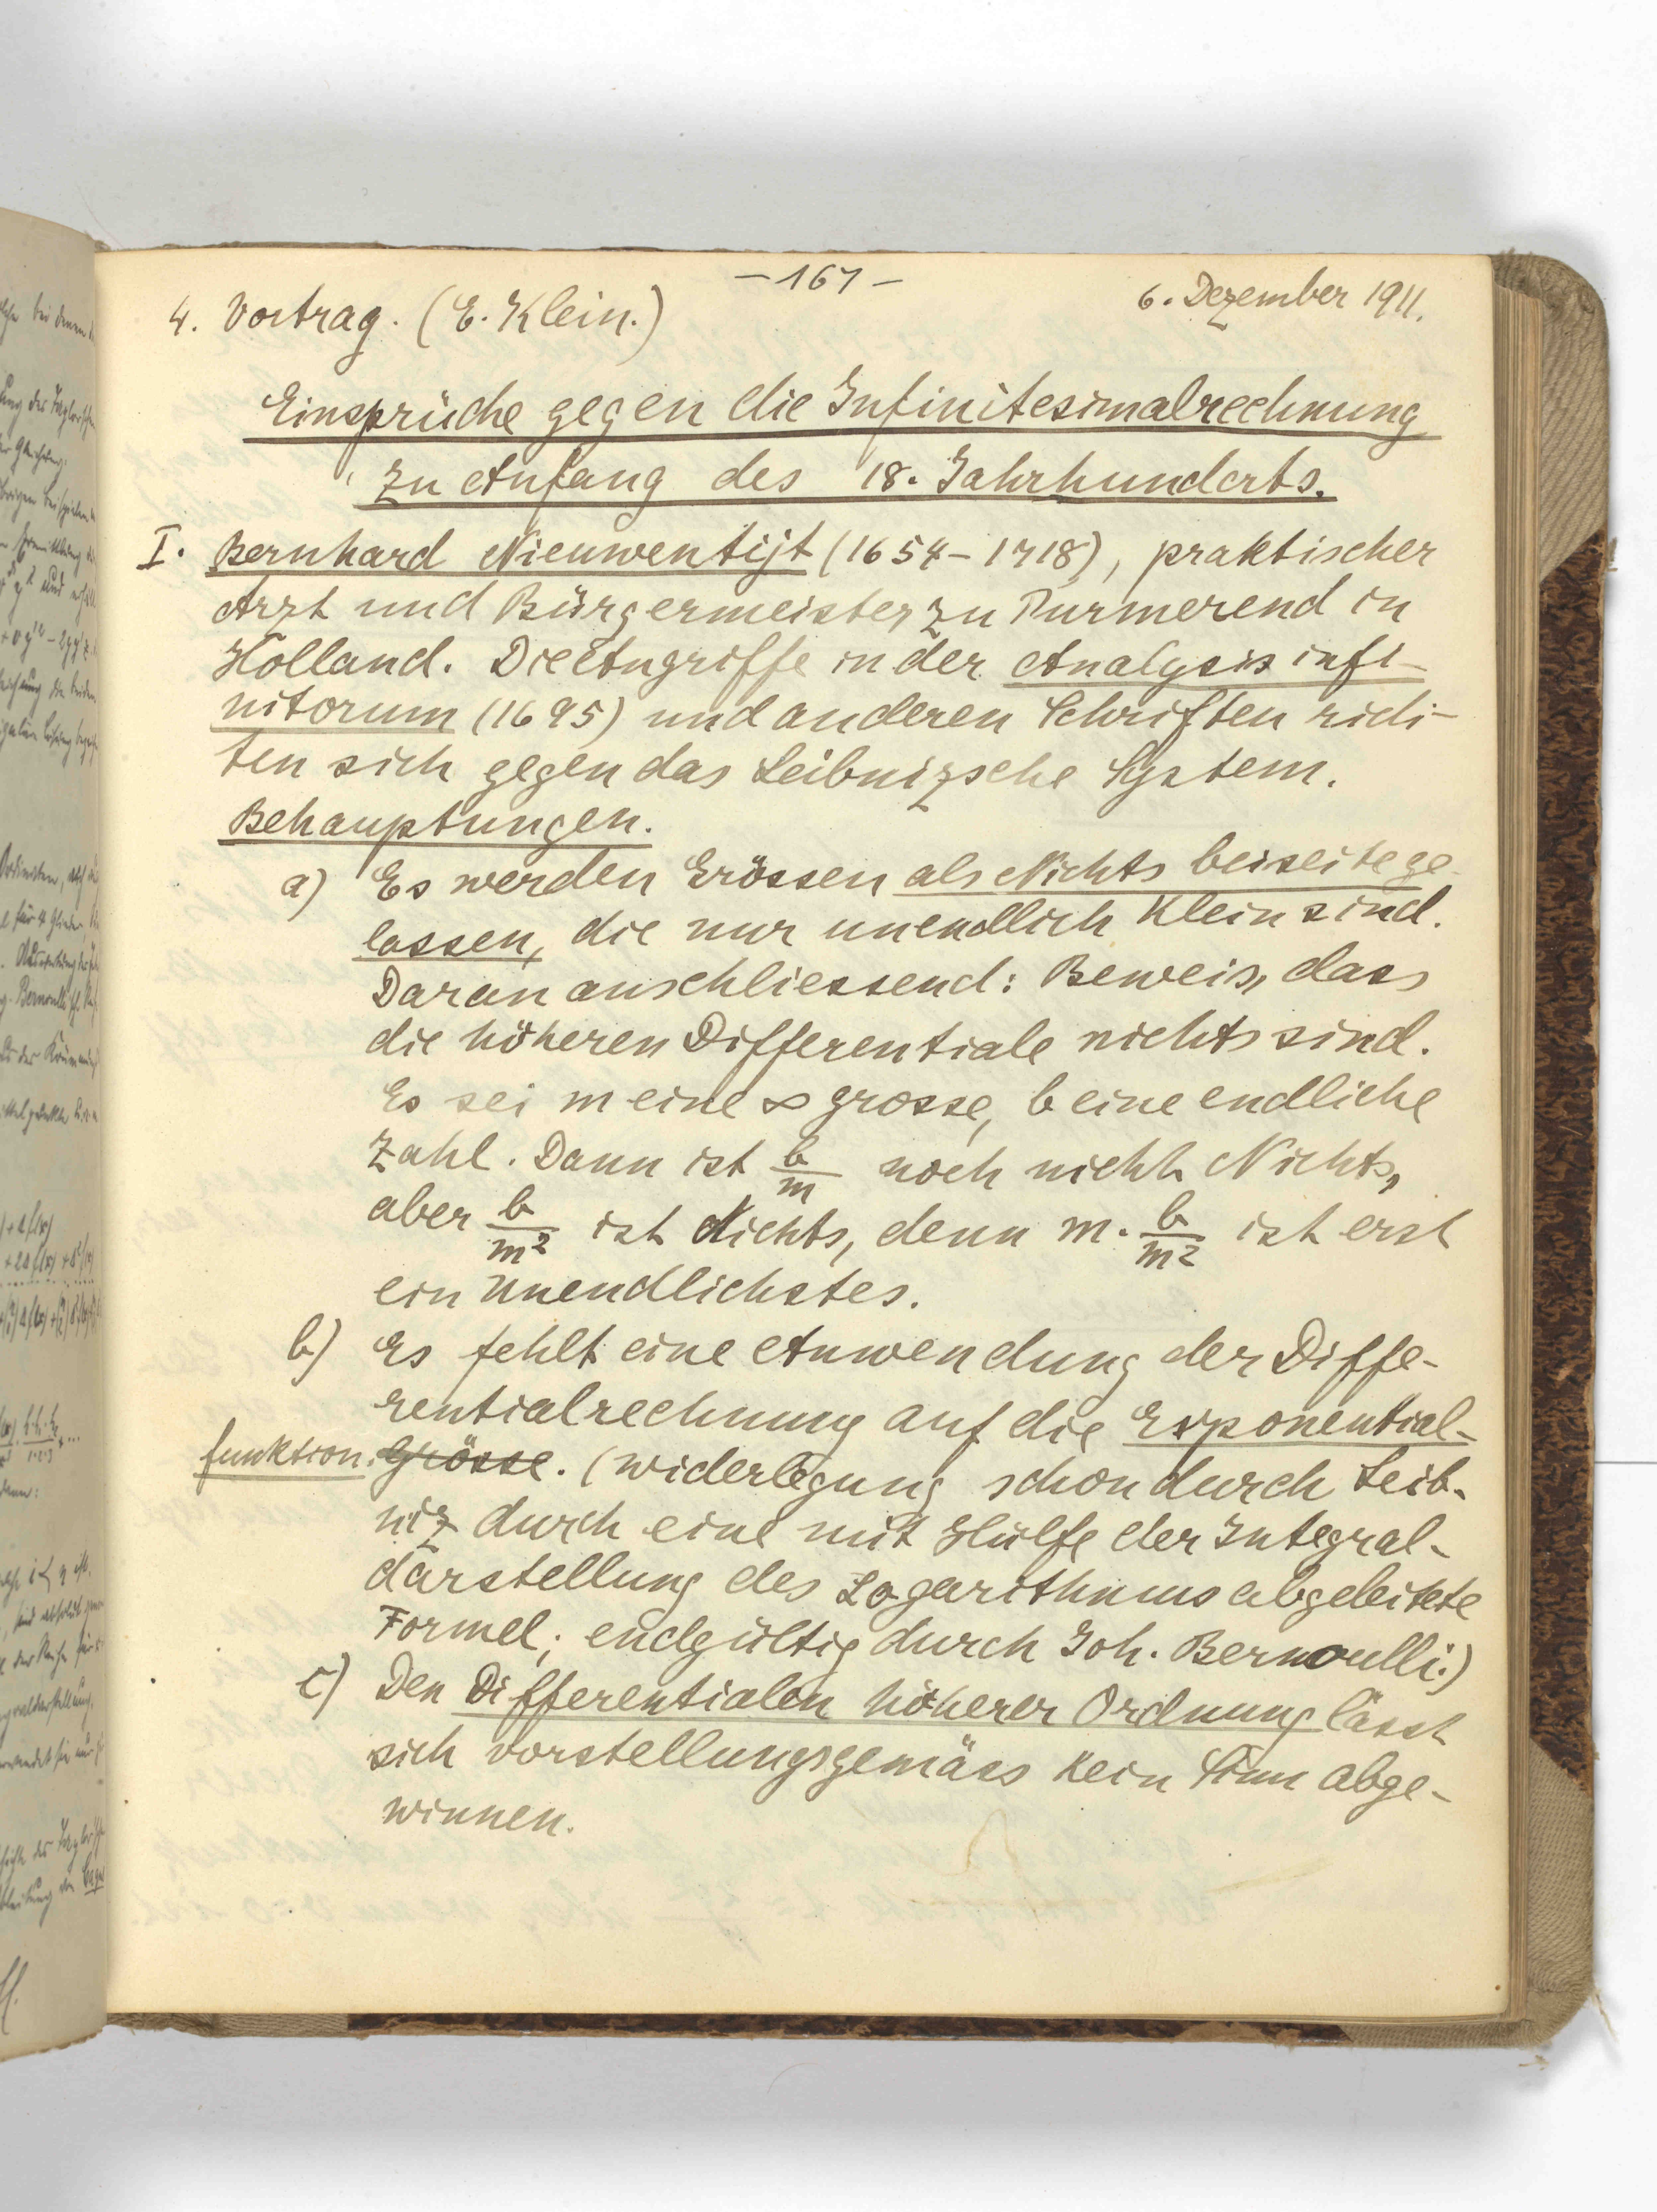 - 161 -
4. Vortrag. (E. Klein.)
6. Dezember 1911.
Einsprüche gegen die Infinitesimalrechnung
zu Anfang des 18. Jahrhunderts.
I. Bernhard Nieuwentijt (1654-1718), praktischer
Arzt und Bürgermeister zu Purmerend in
Holland. Die Angriffe in der Analysis infi-
nitorum (1695) und anderen Schriften rich-
ten sich gegen das Leibnizsche System.
Behauptungen.
a) Es werden Grössen als Nichts beiseite ge-
lassen, die nur unendlich klein sind.
Daran anschliessend: Beweis, dass
die höheren Differentiale nichts sind.
Es sei m eine ∞ grosse, b eine endliche
Zahl. Dann ist b/m noch nicht Nichts,
aber b/m² ist Nichts, denn m · b/m² ist erst
ein Unendlichstes.
b) Es fehlt eine Anwendung der Diffe-
rentialrechnung auf die Exponential-
funktion. Grösse. (Widerlegung schon durch Leib-
niz durch eine mit Hülfe der Integral-
darstellung des Logarithmus abgeleitete
Formel; endgültig durch Joh. Bernoulli.)
c) Den Differentialen höherer Ordnung lässt
sich vorstellungsgemäss kein Sinn abge-
winnen.